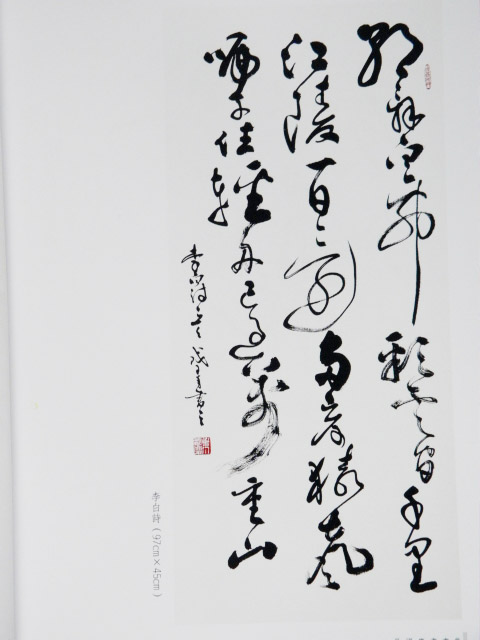 朝辭白帝彩雲間千里
江陵一日還兩岸猿聲
啼不住輕舟已過萬重山
李白詩
李白詩（97cm×45cm）